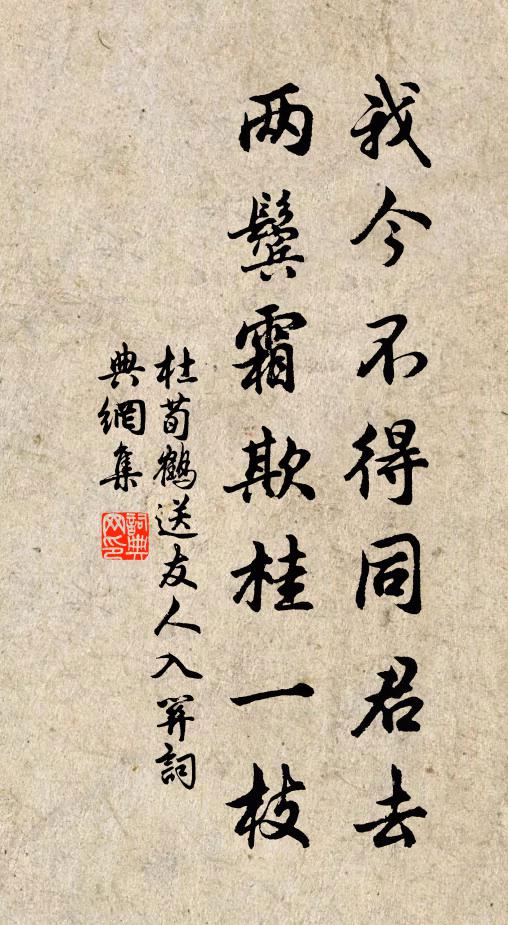 我今不得同君去
两鬓霜欺桂一枝
杜荀鶴送友人入関詞
典網集
詞典
网印